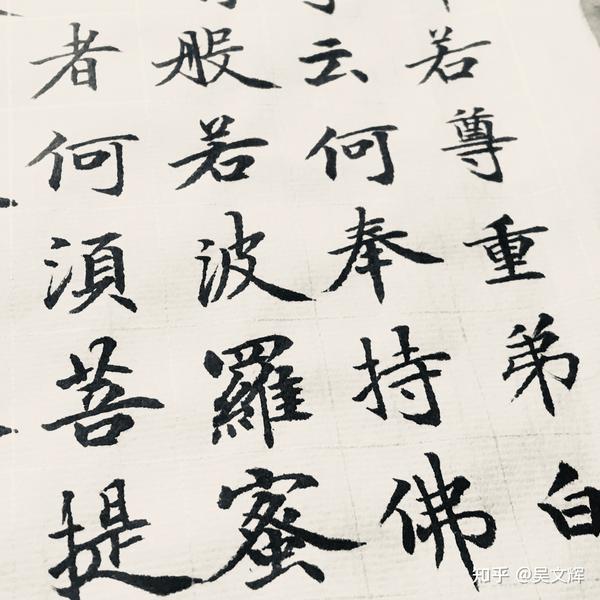 若尊重弟白
云何奉持佛
般若波羅蜜
者何湏菩提
知乎 @吴文辉